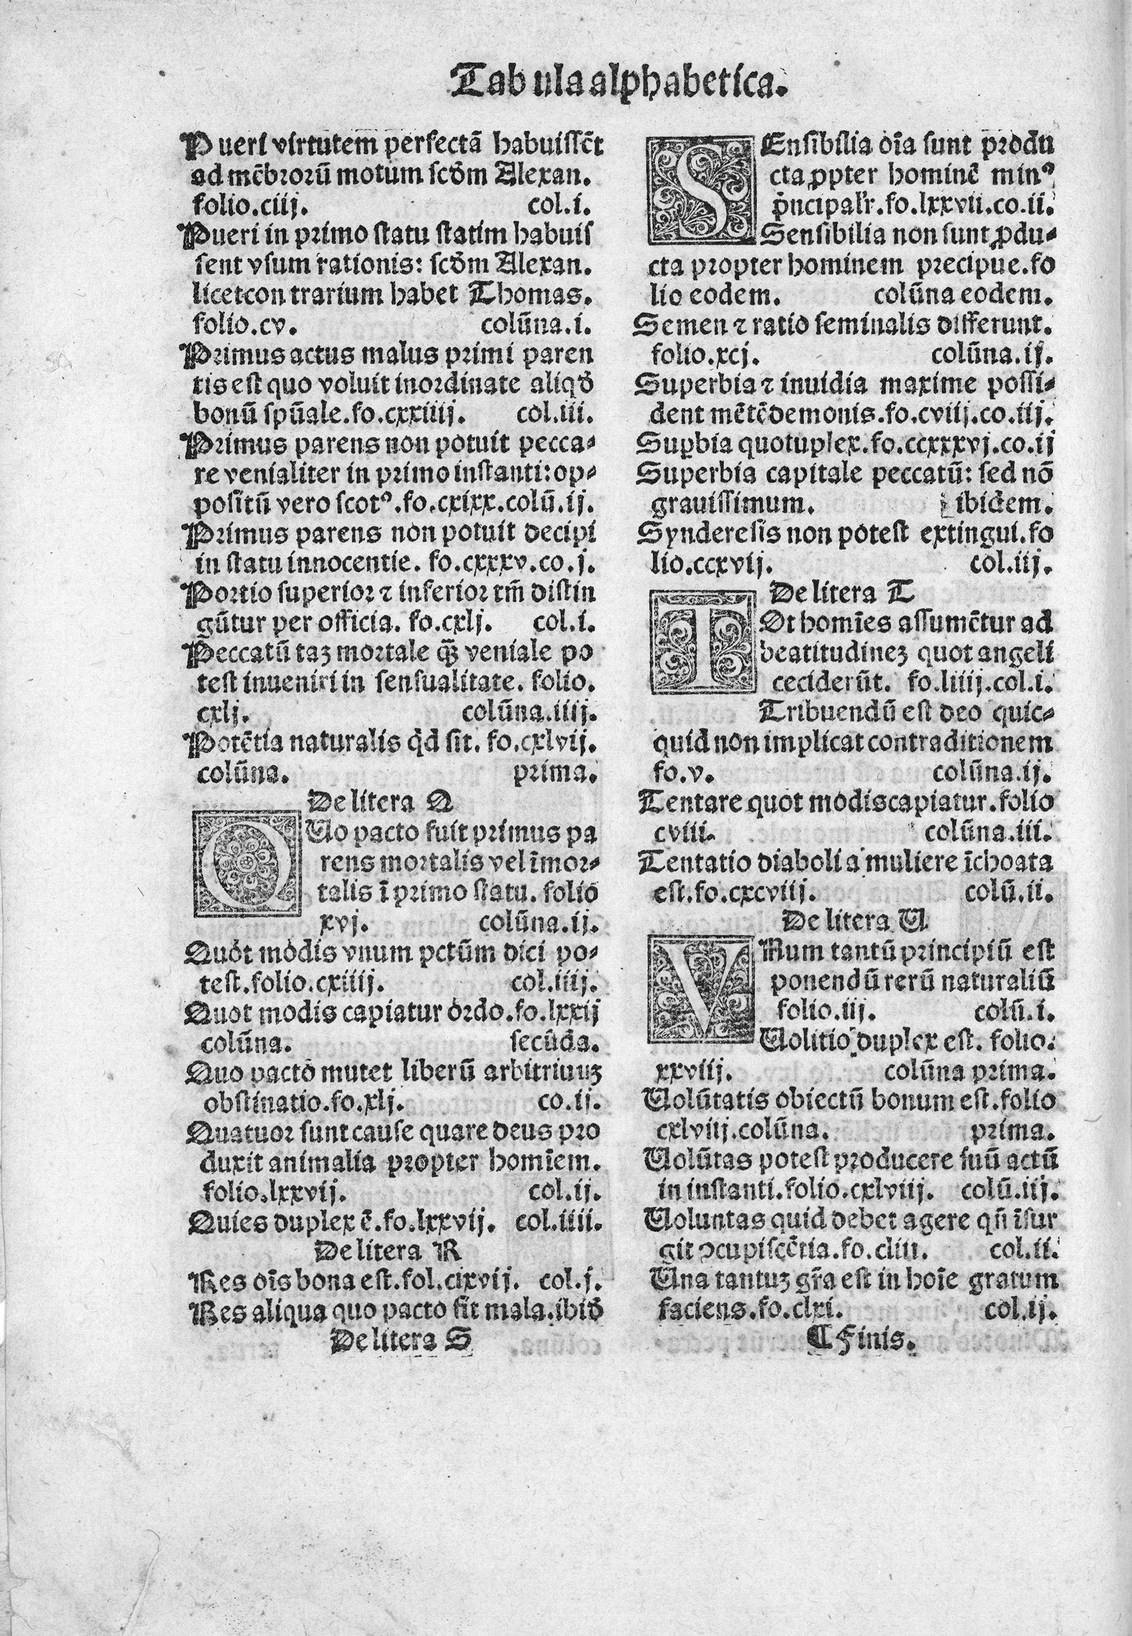 Tabula alphabetica.
Pueri virtutem perfectā habuissēt
ad mēbrorū motum scd̄m Alexan.
folio.ciij. col.i.
Pueri in primo statu statim habuis
sent vsum rationis: scd̄m Alexan.
licet con trarium habet Thomas.
folio.cv. colūna.i.
Primus actus malus primi paren
tis est quo voluit inordinate aliqd̄
bonū spūale.fo.cxxiiij. col.iii.
Primus parens non potuit pecca-
re venialiter in primo instanti: op-
positū vero scotꝰ.fo.cxixx.colū.ij.
Primus parens non potuit decipi
in statu innocentie. fo.cxxxv.co.j.
Portio superior ⁊ inferior tm̄ distin
gūtur per officia. fo.cxlj. col.i.
Peccatū taꝫ mortale qꝫ̄ veniale po
test inueniri in sensualitate. folio.
cxlj. colūna.iiij.
Potētia naturalis qd̄ sit. fo.cxlvij.
colūna. prima.
De litera Q
QUo pacto fuit primus pa
rens mortalis vel īmor-
talis ī primo statu. folio
xvj. colūna.ij.
Quot modis vnum pctūm dici po-
test.folio.cxiiij. col.iiij.
Quot modis capiatur ordo.fo.lxxij
colūna. secūda.
Quo pacto mutet liberū arbitriuuꝫ
obstinatio.fo.xlj. co.ij.
Quatuor sunt cause quare deus pro
duxit animalia propter homīem.
folio.lxxvij. col.ij.
Quies duplex ē.fo.lxxvij. col.iiii.
De litera R
Res oīs bona est.fol.cixvij. col.j.
Res aliqua quo pacto fit mala.ibid̄
De litera S
SEnsibilia oīa sunt produ
cta ꝓpter hominē minꝰ
p̄ncipalr̄.fo.lxxvii.co.ii.
Sensibilia non sunt ꝓdu-
cta propter hominem precipue.fo
lio eodem. colūna eodem.
Semen ⁊ ratio seminalis differunt.
folio.xcj. colūna.ij.
Superbia ⁊ inuidia maxime possi-
dent mētē demonis.fo.cviij.co.iij.
Suꝑbia quotuplex.fo.ccxxxvj.co.ij
Superbia capitale peccatū: sed nō
grauissimum. ibidem.
Synderesis non potest extingui.fo
lio.ccxvij. col.iij.
De litera T
TOt homīes assumētur ad
beatitudineꝫ quot angeli
ceciderūt. fo.liiij.col.i.
Tribuendū est deo quic-
quid non implicat contraditionem
fo.v. colūna.ij.
Tentare quot modis capiatur.folio
cviii. colūna.iii.
Tentatio diaboli a muliere īchoata
est.fo.cxcviij. colū.ii.
De litera U
VNum tantū principiū est
ponendū rerū naturaliū
folio.iij. colū.i.
Uolitio duplex est. folio.
xxviij. colūna prima.
Uolūtatis obiectū bonum est.folio
cxlviij.colūna. prima.
Uolūtas potest producere suū actū
in instanti.folio.cxlviij. colū.iij.
Uoluntas quid debet agere qn̄ īsur
git ɔcupiscētia.fo.cliii. col.ii.
Una tantuꝫ gr̄a est in hoīe gratum
faciens.fo.clxi. col.ij.
¶ Finis.